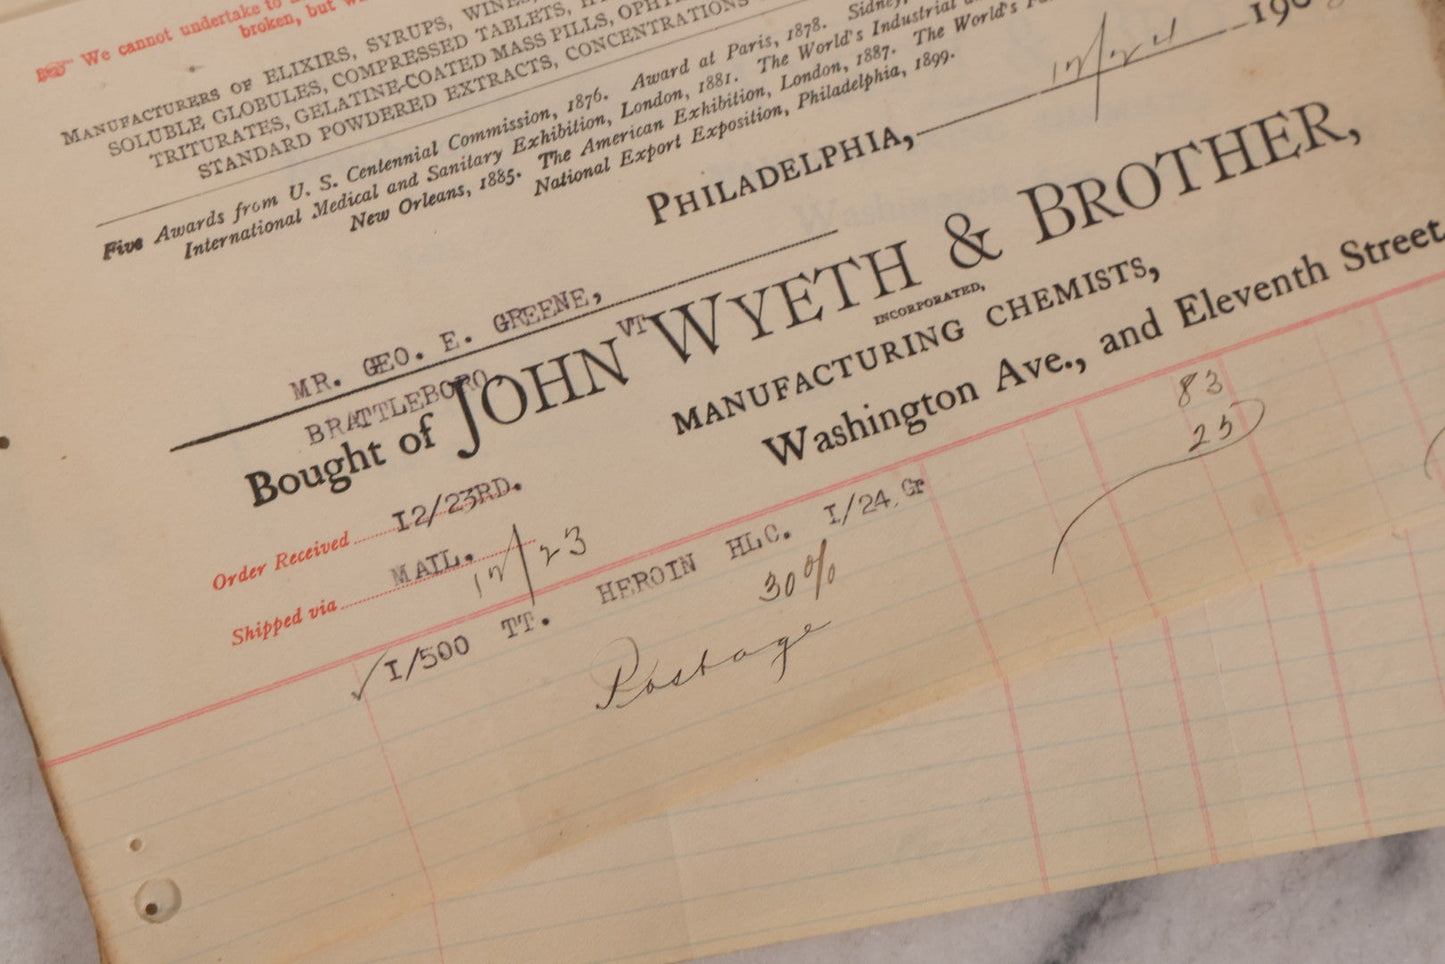 We cannot undertake to
broken, but
MANUFACTURERS OF ELIXIRS, SYRUPS, WINES,
SOLUBLE GLOBULES, COMPRESSED TABLETS,
TRITURATES, GELATINE-COATED MASS PILLS,
STANDARD POWDERED EXTRACTS, CONCENTRATIONS
Five Awards from U. S. Centennial Commission, 1876. Award at Paris, 1878. Sidney,
International Medical and Sanitary Exhibition, London, 1881. The World's Industrial
New Orleans, 1885. The American Exhibition, London, 1887. The World's
National Export Exposition, Philadelphia, 1899.
PHILADELPHIA, 12/24 190
MR. GEO. E. GREENE,
BRATTLEBORO, VT
Bought of JOHN WYETH & BROTHER,
INCORPORATED,
MANUFACTURING CHEMISTS,
Washington Ave., and Eleventh Street.
Order Received I2/23RD.
Shipped via MAIL. 12/23
✓ I/500 TT. HEROIN HLC. I/24 Gr 83
30% 25
Postage